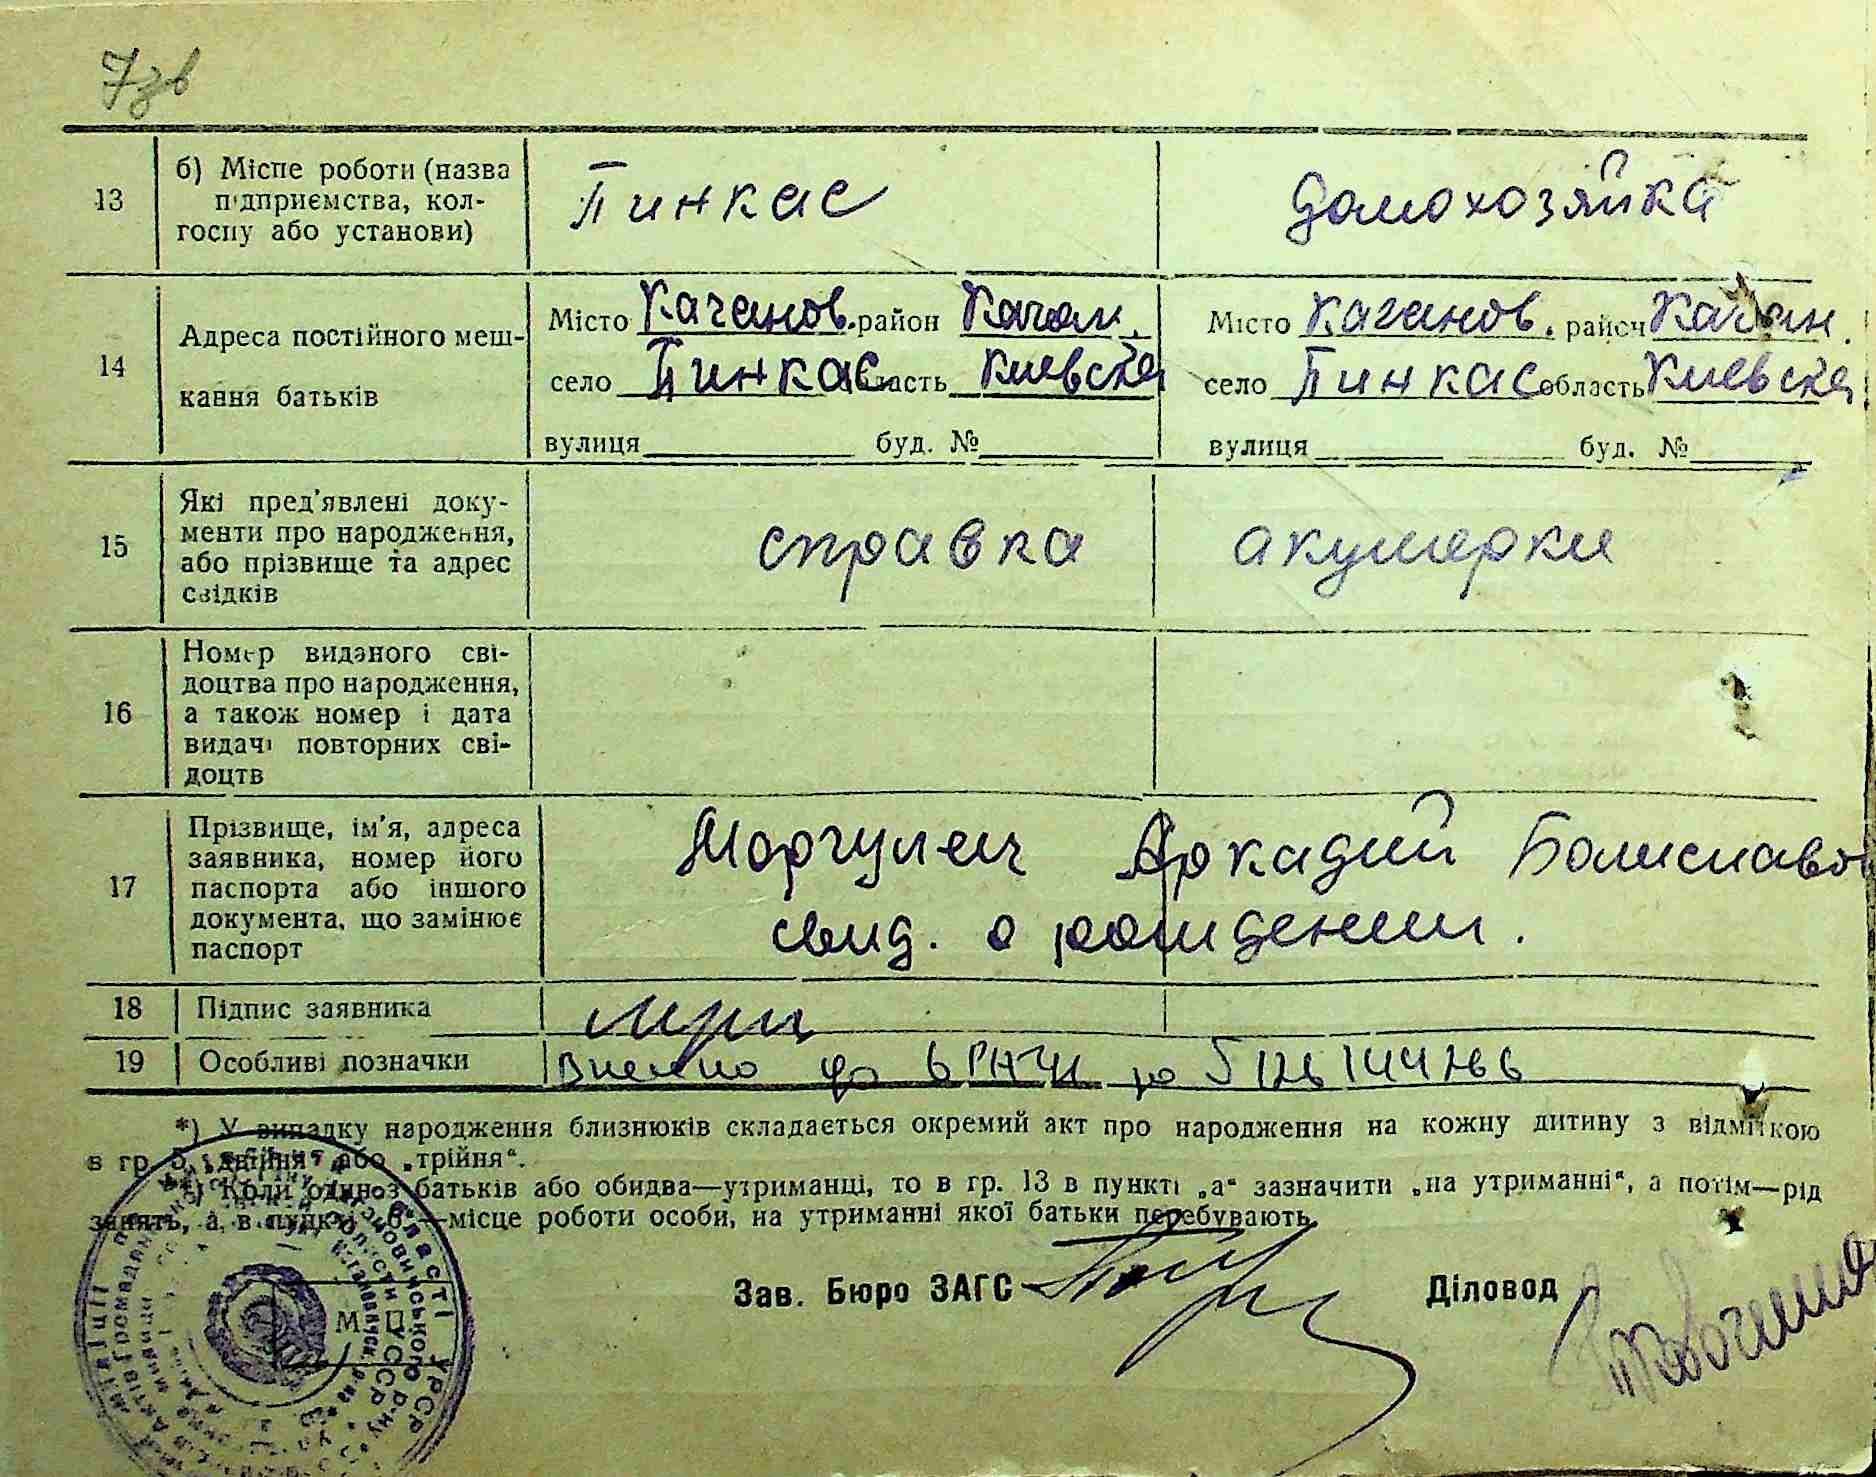 7зв
13 б) Місце роботи (назва підприємства, колгоспу або установи) Пинкас домохозяйка
14 Адреса постійного мешкання батьків
Місто Каганов. район Каган. Місто Каганов. район Каган.
село Пинкас область Киевска село Пинкас область Киевска
вулиця буд. № вулиця буд. №
15 Які пред'явлені документи про народження, або прізвище та адрес свідків справка акушерки
16 Номер виданого свідоцтва про народження, а також номер і дата видачі повторних свідоцтв
17 Прізвище, ім'я, адреса заявника, номер його паспорта або іншого документа, що замінює паспорт
Моргулец Аркадий Болиславов
свид. о рождении.
18 Підпис заявника
19 Особливі позначки Внесено до
*) У випадку народження близнюків складається окремий акт про народження на кожну дитину з відміткою
в гр. 5 „двійня“ або „трійня“.
**) Коли один з батьків або обидва—утриманці, то в гр. 13 в пункті „а“ зазначити „на утриманні“, а потім—рід
занять, а в пункті „б“—місце роботи особи, на утриманні якої батьки перебувають.
Зав. Бюро ЗАГС Діловод
М. П.